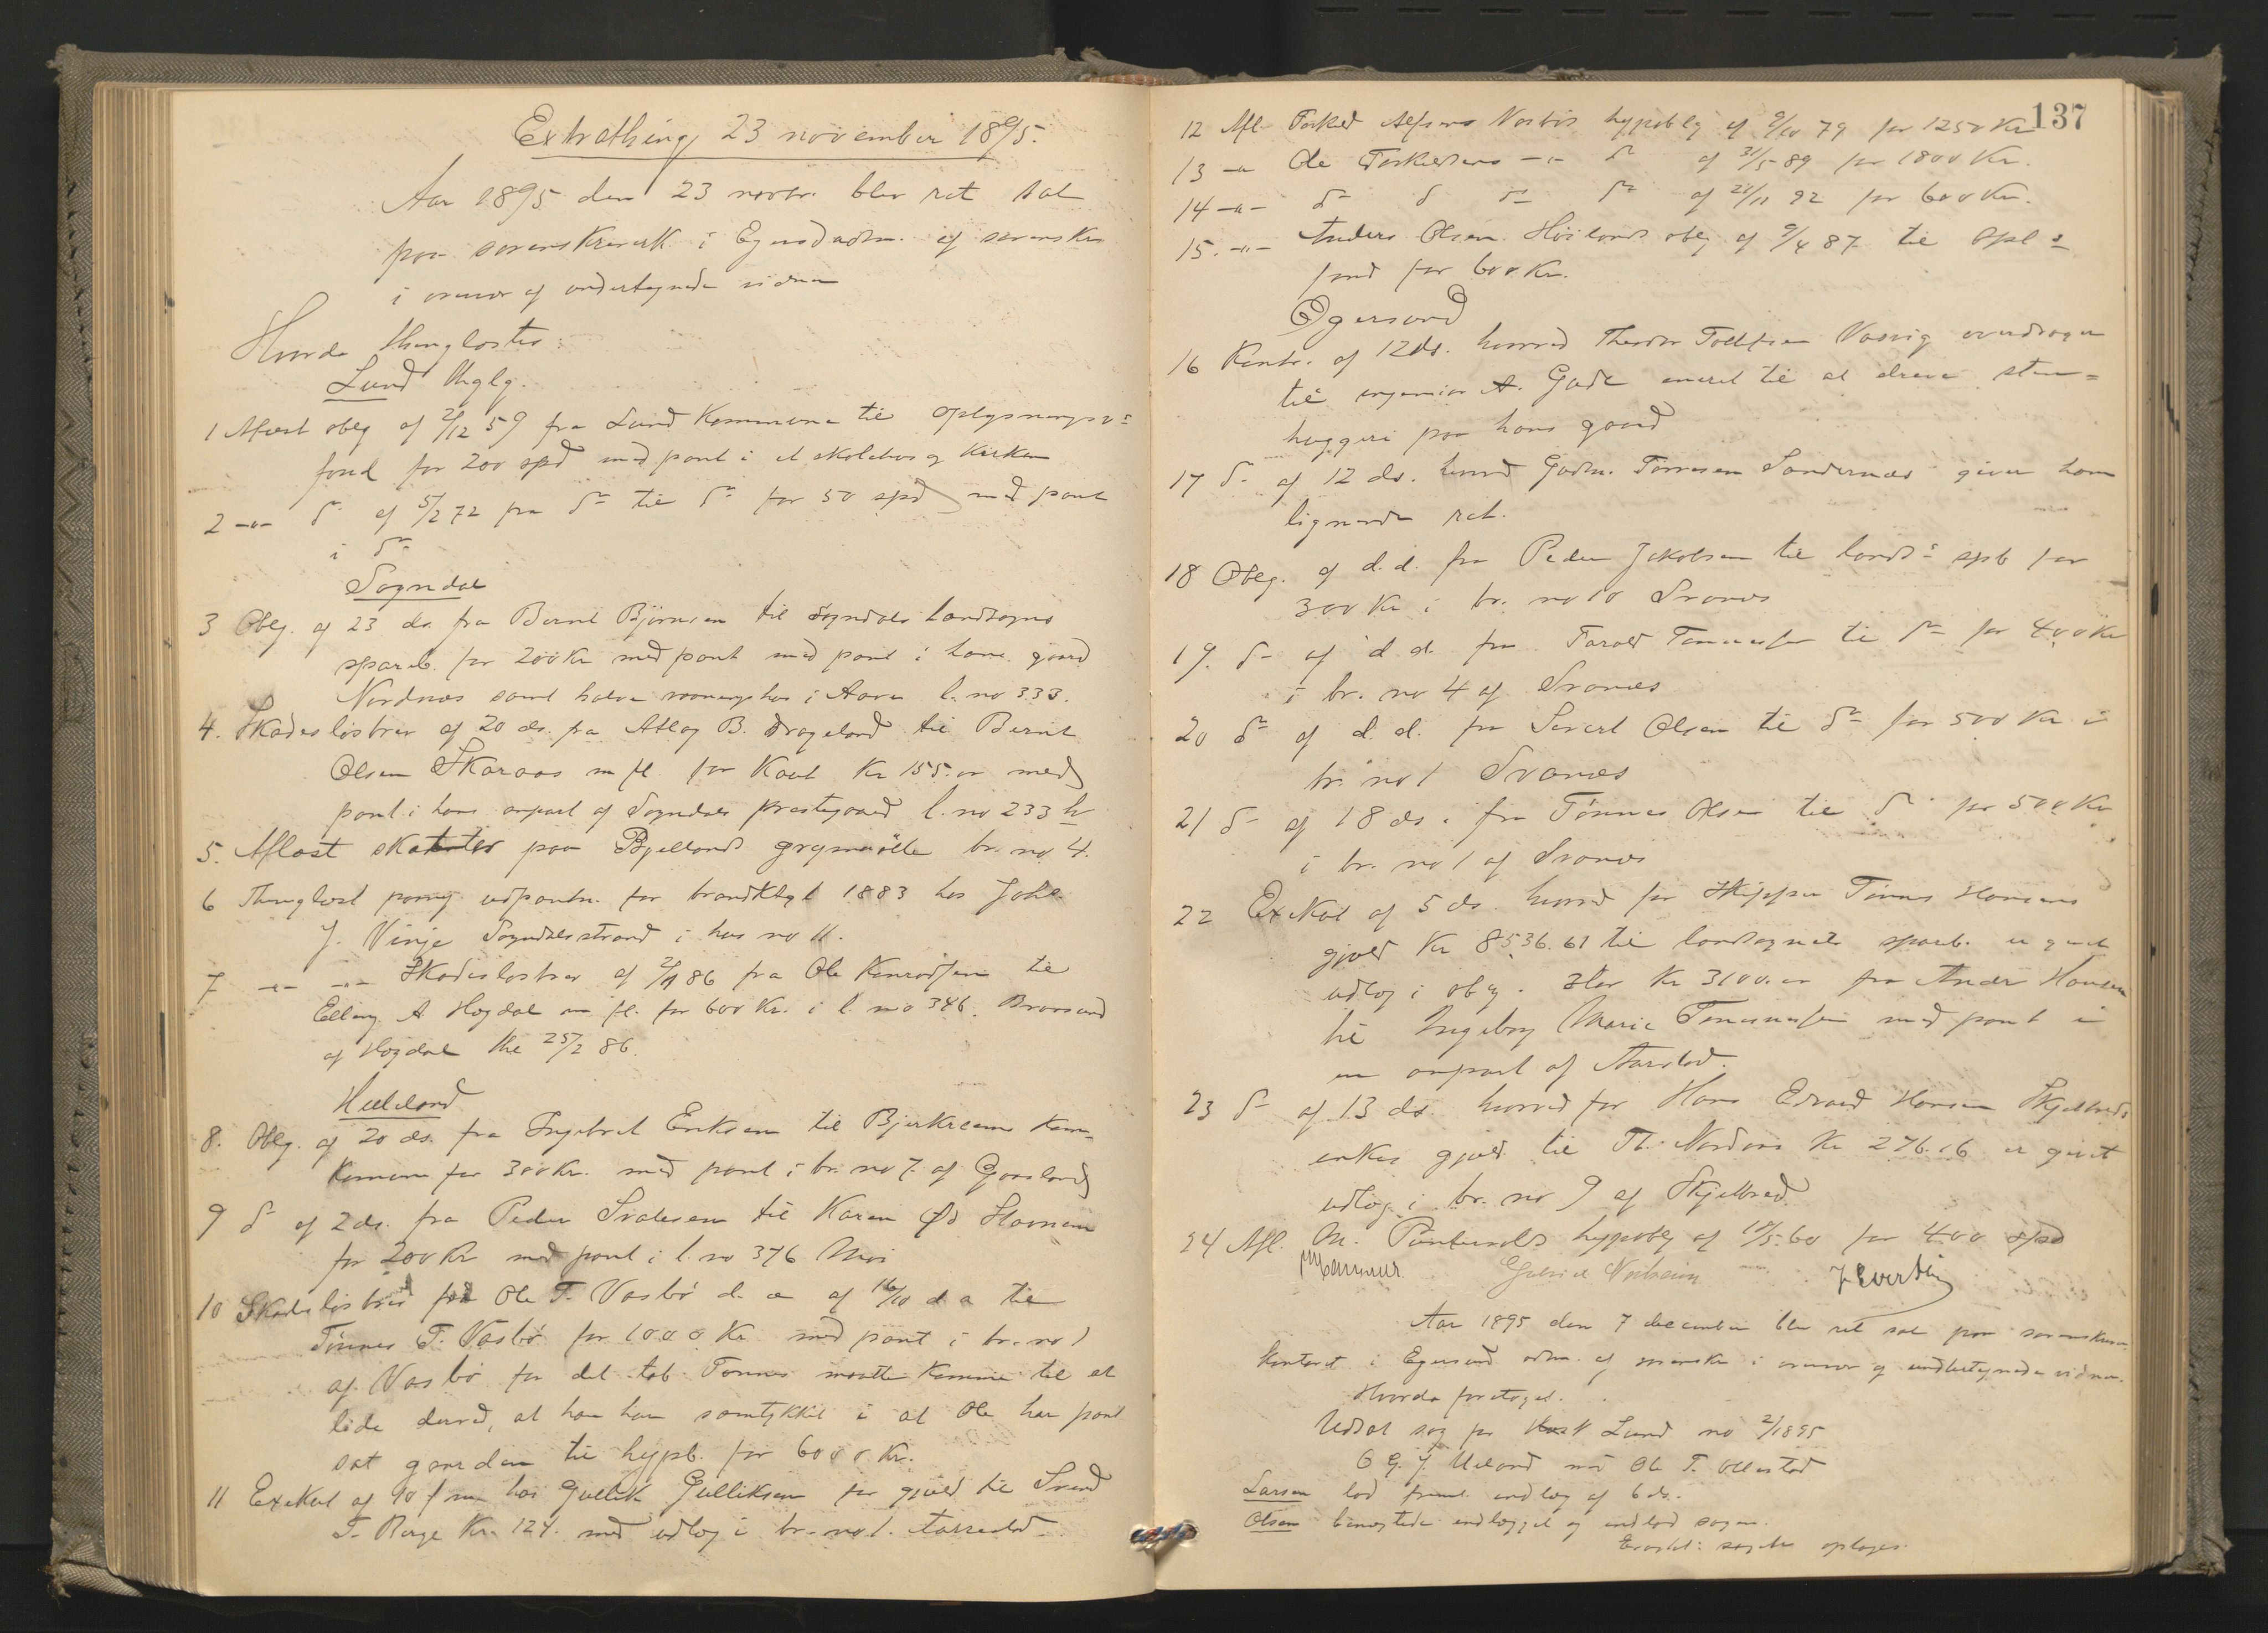 Extrathing 23 november 1895.
Aar 1895 den 23 novbr. blev ret sat
paa sorenskriverk. i Egersund adm. af sorenskr
i overvær af undertegnede vidner
Hvorda thinglæstes:
Lund thglg.
1 Aflæst oblg af 2/12 59 fra Lund Kommune til oplysningsv=
fond for 200 spd med pant i et skolehus og kirken
2 -"- do af 5/2 72 fra do til do for 50 spd med pant
i do
Sogndal
3 Oblg. af 23 ds. fra Bernt Björnsen til Sogndals landsogns
spareb. for 200 Kr med pant med pant i hans gaard
Nordnæs samt halve vaaningshus i Aava l. no 333.
4. Skadesløsbrev af 20 ds. fra Atlag B. Drageland til Bernt
Olsen Skaraas m fl. for Kaut Kr 155.00 med
pant i hans anpart af Sogndals præstegaard l. no 233 h
5. Aflæst paa Bjellands grynmölle br. no 4.
6 Thinglæst udpantn. for brandktgt 1883 hos Johs.
J. Vinje Sogndalsstrand i hus no 11.
7 -"- -"- Skadesløsbrev af 86 fra Ole Konradsen til
Elling A Hogdal m fl. for 600 Kr. i l. no 346.
af Hogdal thl 25/2 86.
Helleland
8. Oblg. af 20 ds. fra Ingebret Eriksen til Bjerkreims Kom=
kommune for 300 Kr. med pant i br. no 7. af Gaasland
9 do af 2 ds. fra Peder Svalesen til Karen Hansen
for 200 Kr med pant i l. no 376 Moi
10 Skadesløsbrev fra Ole T. Vasbø d. æ af 16/10 d a til
Tønnes T. Vasbø for 1000 Kr med pant i br. no 1
af Vasbø for det tab Tønnes maatte komme til at
lide derved, at han har samtykket i at Ole har pant
sat gaarden til hypb. for 6000 Kr.
11 Exekut af 90 f m hos Gullik Gulliksen for gjæld til Svend
T. Berge Kr. 124. med udlæg i br. no 1. Aarrestad
137
12 Afl. Torkel Vasbös hypoblg af 9/10 79 for 1250 Kr
13 -"- Ole Torkelsens -"- do af 31/5 89 for 1800 Kr.
14 -"- do do do do af 21/11 92 for 600 Kr.
15. -"- Anders Olsen Höilands oblg af 9/4 87 til Opl s
fond for 600 Kr.
Egersund
16 Kontr. af 12 ds. hvorved Theodor Tollefsen Vassvig overdrager
til ingeniør A. Gade eneret til at drive sten=
huggeri paa hans gaard
17 do af 12 ds. hvorved Gudm. Tönnesen Søndernæs giver ham
lignende ret.
18 Oblg. af d.d. fra Peder Jakobsen til lands spb for
300 Kr i br. no 10 Svanes
19. do af d. d. fra Tarald Tønnesen til do for 400 Kr
i br. no 4 af Svanes
20 do af d. d. fra Sivert Olsen til do for 500 Kr i
br no 1 Svanes
21 do af 18 ds. fra Tønnes Olsen til do for 500 Kr
i br. no 1 af Svanes
22 Exekut af 5 ds. hvorved for Skipper Tønnes Hansens
gjæld Kr 8536.61 til landsognets spareb. er gjort
udlæg i oblg. stor Kr 3100.00 fra Andr Hansen
til Ingeborg Marie Tønnesen med pant i
en anpart af Aarstad.
23 do af 13 ds. hvorved for Hans Edvard Hansen Skjelbreds
enkes gjæld til Th. Nordaas Kr 276.16 er gjort
udlæg i br. no 9 af Skjelbred
24 Afl. M. Puntervolds hypoblg af 60 for 400 spd
Gabriel J Evertsen
Aar 1895 den 7 december blev ret sat paa sorenskriver
kontoret i Egersund adm. af sorenskr i overvær og undertegnede vidner.
Hvorda foretoges.
Udsat sag fra Lund no 2/1895
O G. J. Meland mod Ole T. Ollestad
Larsen lod freml. indlæg af 6 ds.
Olsen benægtede indlægget og indlod sagen.
Eragtet: sagen optages.